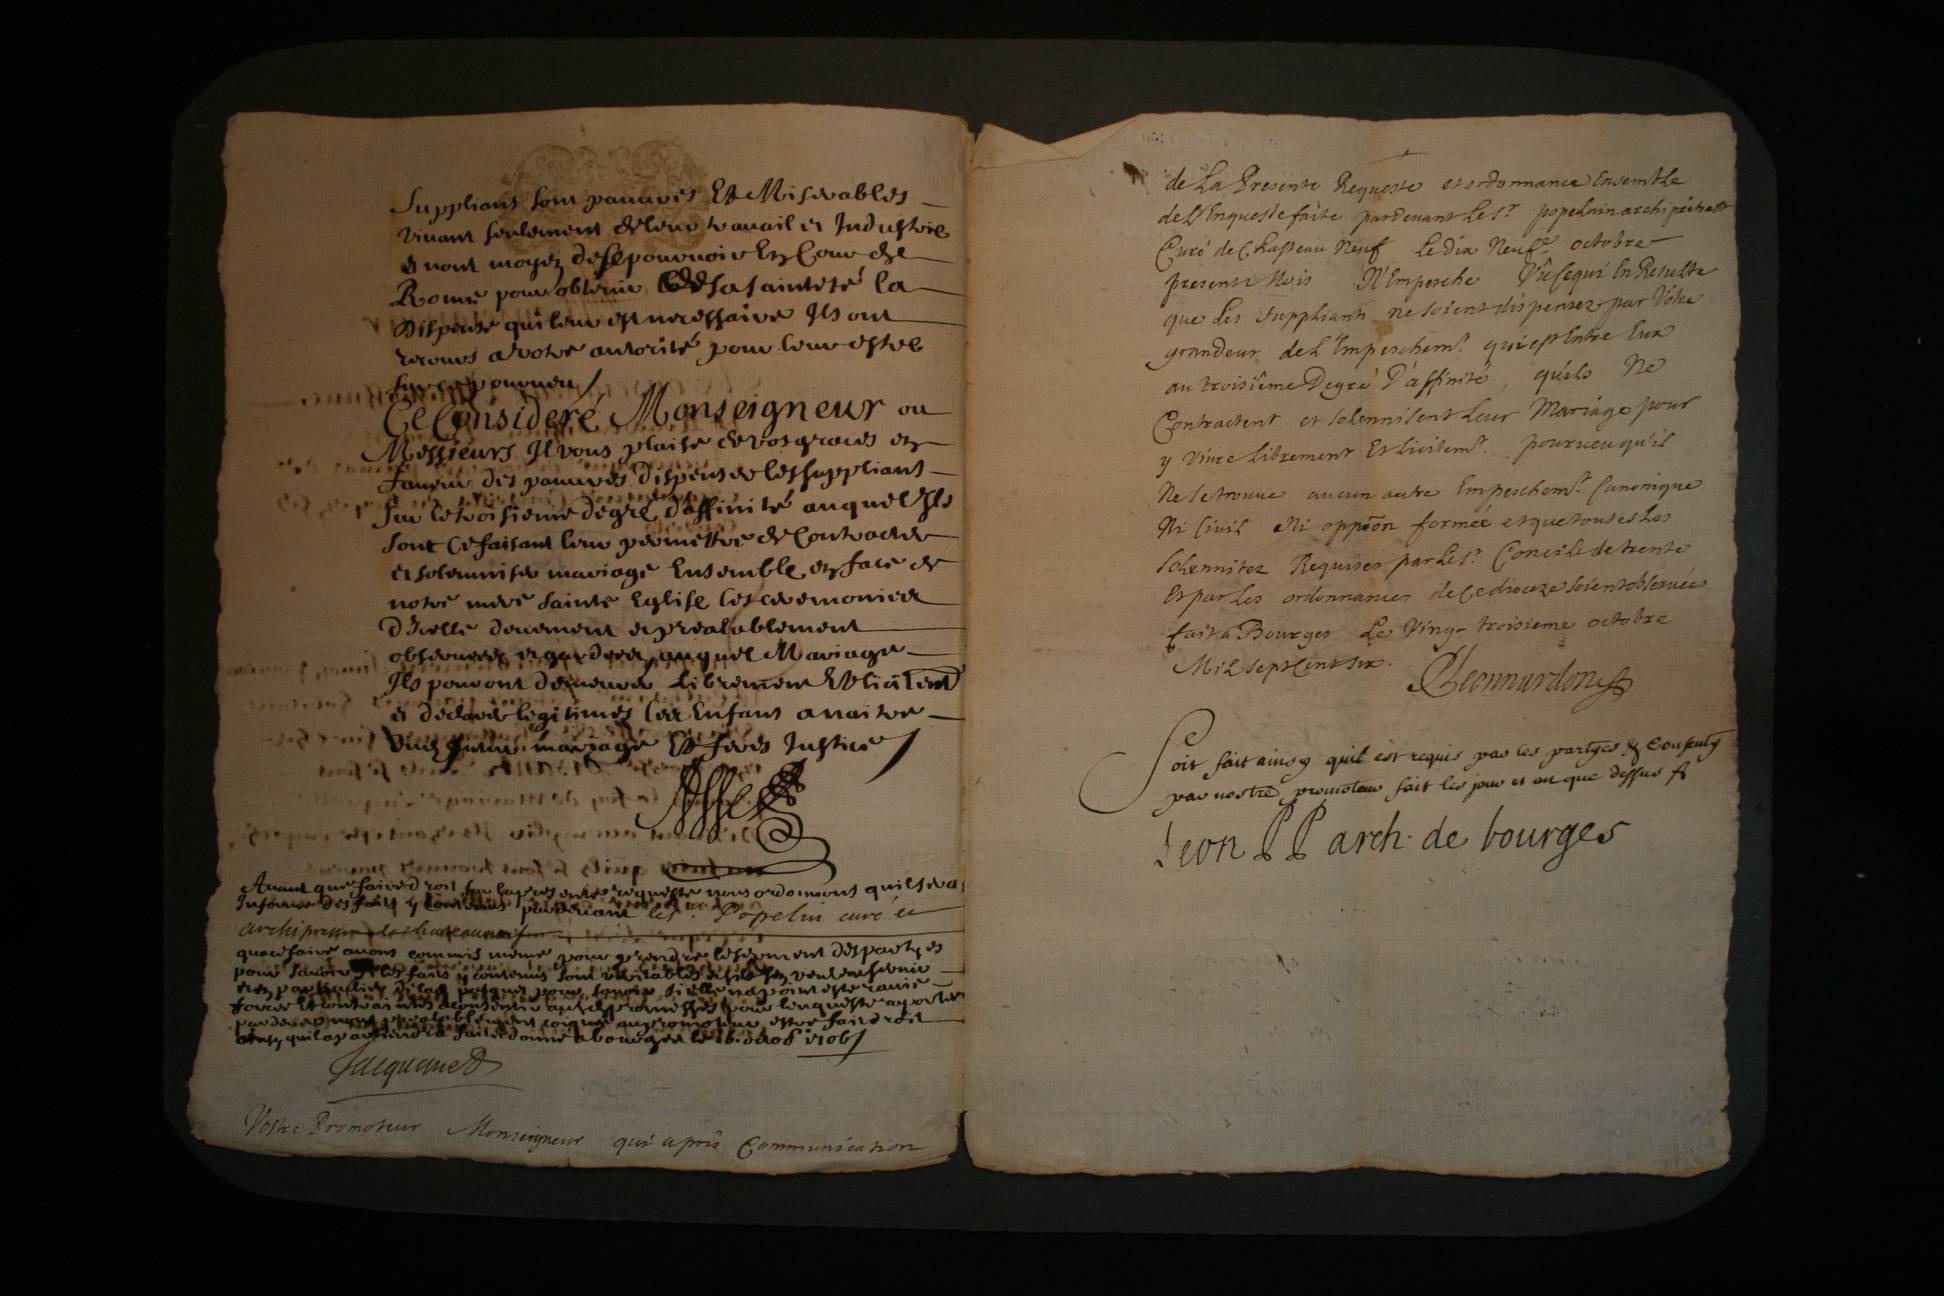 Suppliants sont pauures Et Miserables
viuant seulement de leur trauail et Industrie
et nont moyen de se pouruoir En Cour de
Rome pour obtenir de sa sainteté la
Dispense qui leur est necessaire Ils ont
recours a votre autorité pour leur estre
sur ce pourueu /
Ce Consideré Monseigneur ou
Messieurs Il vous plaise de vos graces et
faueur des pauures dispenser les suppliants
Sur le troisieme degre d'affinité auquel Ils
sont Ce faisant leur permettre de Contracter
et solemniser mariage Ensemble en face de
notre mere sainte Eglise les ceremonies
d'Icelle deuement et prealablement
obseruées et gardées, auquel Mariage
Ils pouront demeurer librement Et licitemt
et declarer legitimes les Enfans a naitre
dud futur mariage Et feres Justice /
Auant que faire droit sur la presente requeste nous ordonnons quil sera
Informé des faits y contenus pardeuant le sr Popelin curé et
archiprestre de chateauneuf
quace faire auons commis mesme pour prendre le serment des partyes
pour sauoir si les faits y contenus sont veritables et sils sen veulent seruir
et en particulier de lad pour sauoir si elle na point este rauie
forcée Et contrainte a consentir pour lenqueste aportée
pardeuers nous prealablement communiquée au promoteur estre fait droit
ainsy quil apartiendra fait et donné a bourges le 16 octob 1706 /
Jacquemet
Vostre Promoteur Monseigneur qui apres Communication
de La Presente Requeste et ordonnance Ensemble
de L'Enqueste faite pardeuant Le Sr popelain archiprêtre
Curé de Chasteau Neuf Le Dix Neufe octobre
present Mois N'Empesche Vû Ce qui En Resulte
que Les suppliants ne soient dispensez par Vôtre
grandeur de L'Empeschemt qui est Entre Eux
au troisiême Degré D'affinité, qu'ils Ne
Contractent et solennisent Leur Mariage pour
y Viure Librement Et licitemt pourueu qu'il
Ne se trouue aucun autre Empeschemt Canonique
Ni Ciuil Ni oppõon formée et que toutes Les
solennitez Requises par Le St Concile de trente
Et par Les ordonnances de Ce dioceze soient obseruées
fait a Bourges Le Vingt troisieme octobre
Mil sept Cent six.
Leonnardon
Soit fait ainsy quil est requis par les partyes & consenty
par nostre promoteur fait les jour et an que dessus
Leon PP arch. de bourges